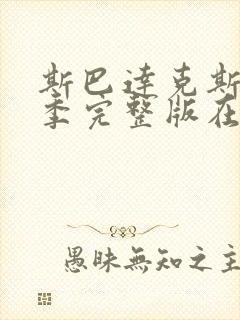 斯巴達克斯
季完整版在
愚昧無知之主